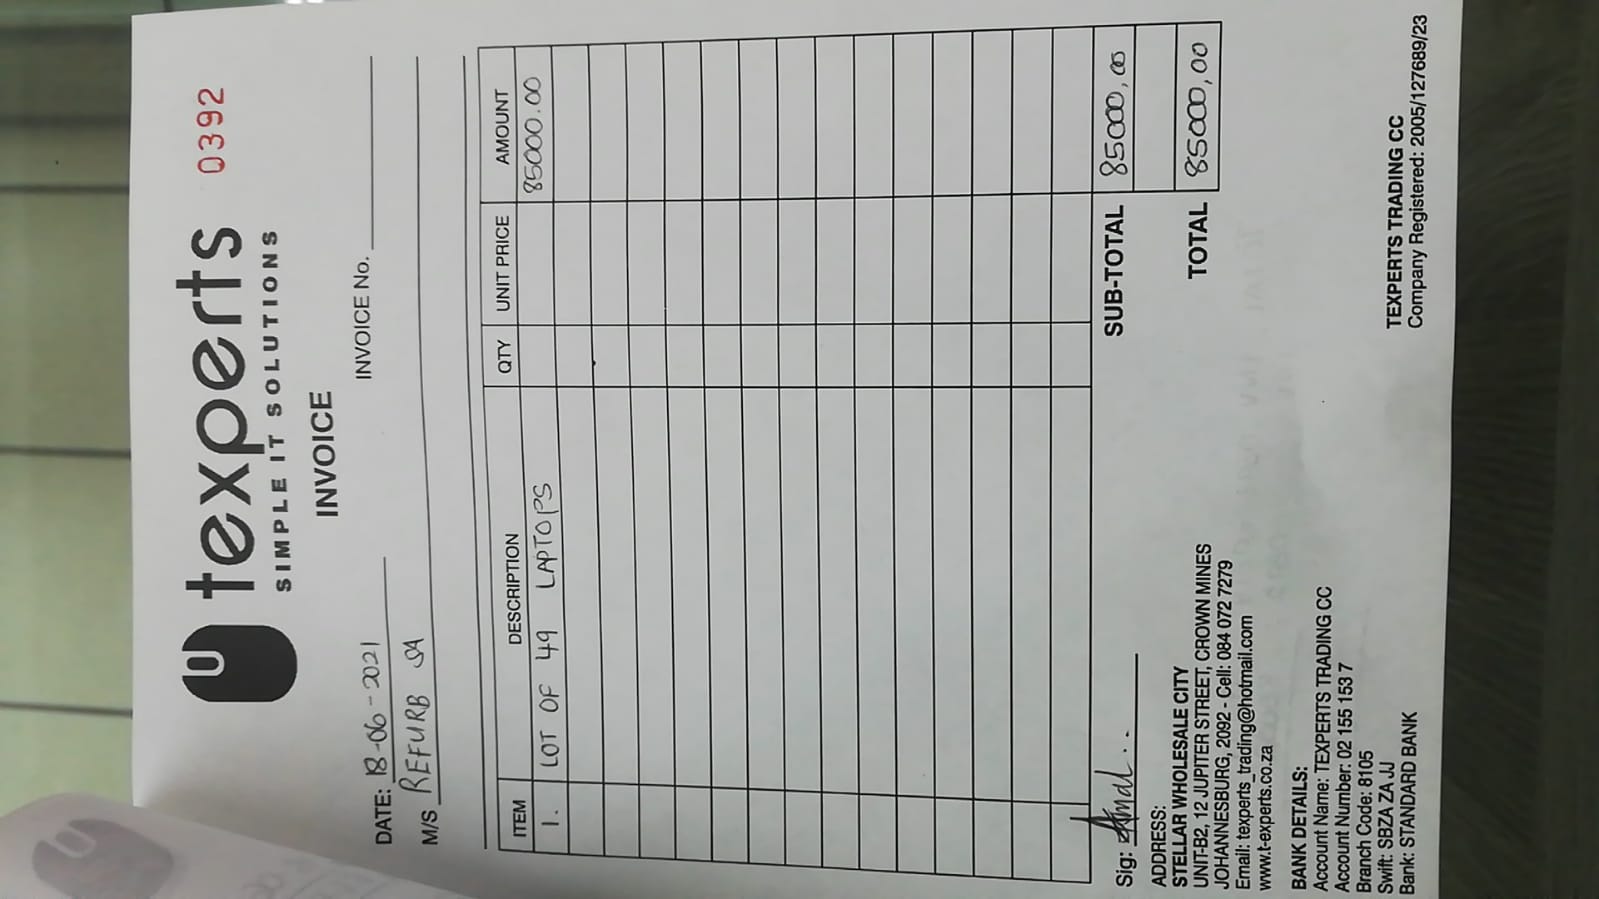 texperts 0392
SIMPLE IT SOLUTIONS
INVOICE
DATE: 18-06-2021 INVOICE No.
M/S REFURB SA
ITEM DESCRIPTION QTY UNIT PRICE AMOUNT
1. LOT OF 49 LAPTOPS 85000.00
SUB-TOTAL 85000,00
TOTAL 85000,00
Sig:
ADDRESS:
STELLAR WHOLESALE CITY
UNIT-B2, 12 JUPITER STREET, CROWN MINES
JOHANNESBURG, 2092 - Cell: 084 072 7279
Email: texperts_trading@hotmail.com
www.t-experts.co.za
BANK DETAILS:
Account Name: TEXPERTS TRADING CC
Account Number: 02 155 153 7
Branch Code: 8105
Swift: SBZA ZA JJ
Bank: STANDARD BANK
TEXPERTS TRADING CC
Company Registered: 2005/127689/23